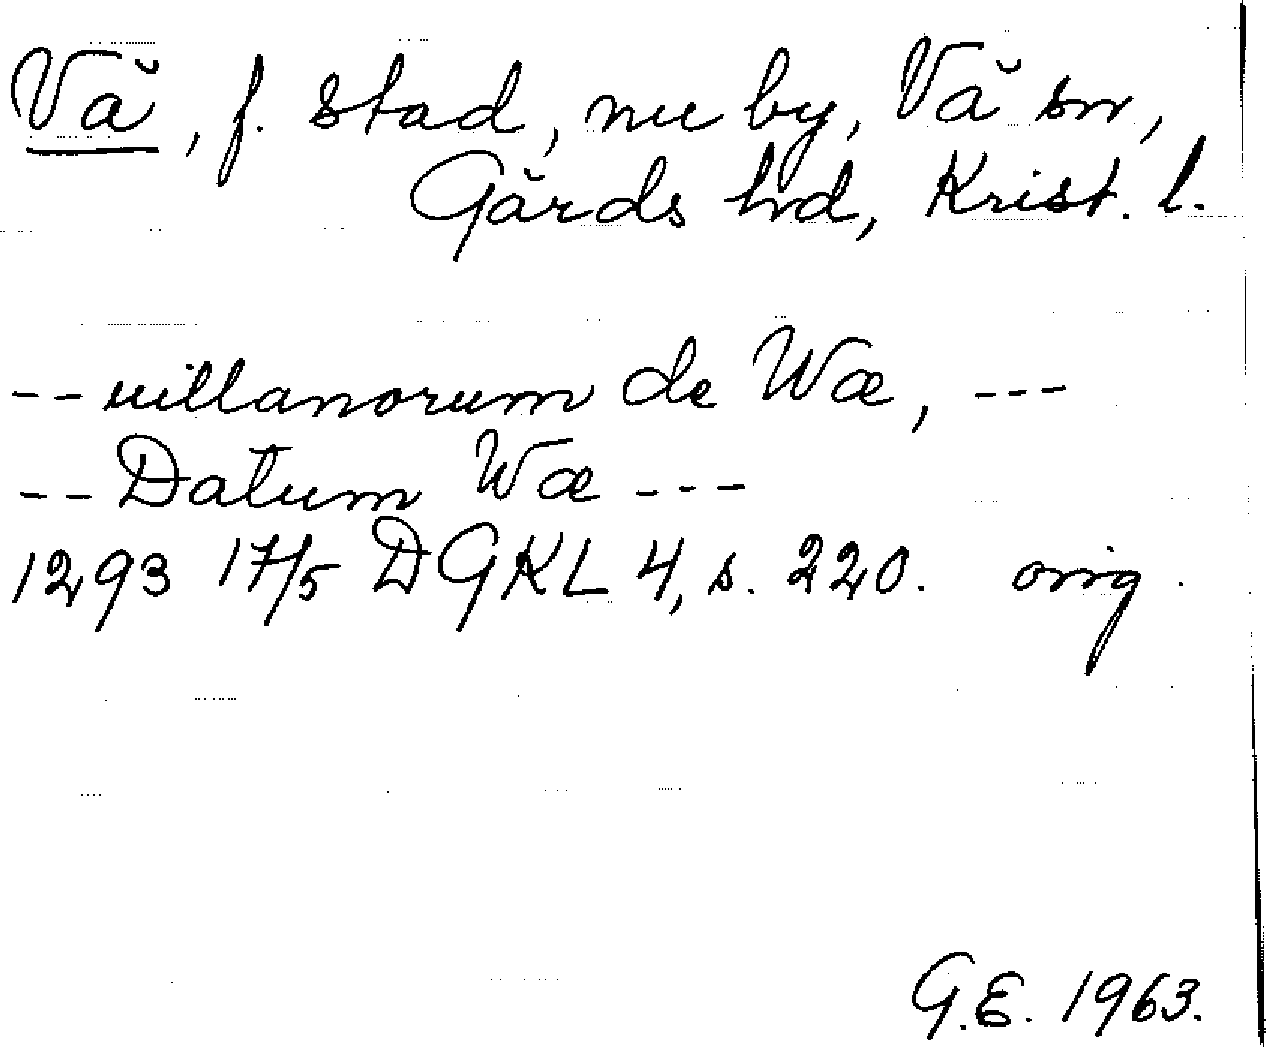 Vä, f. stad, nu by, Vä sn,
Gärds hd, Krist. l.
-- uillanorum de Wæ, ---
-- Datum Wæ ---
1293 17/5 DGKL 4, s. 220. orig.
G.E. 1963.